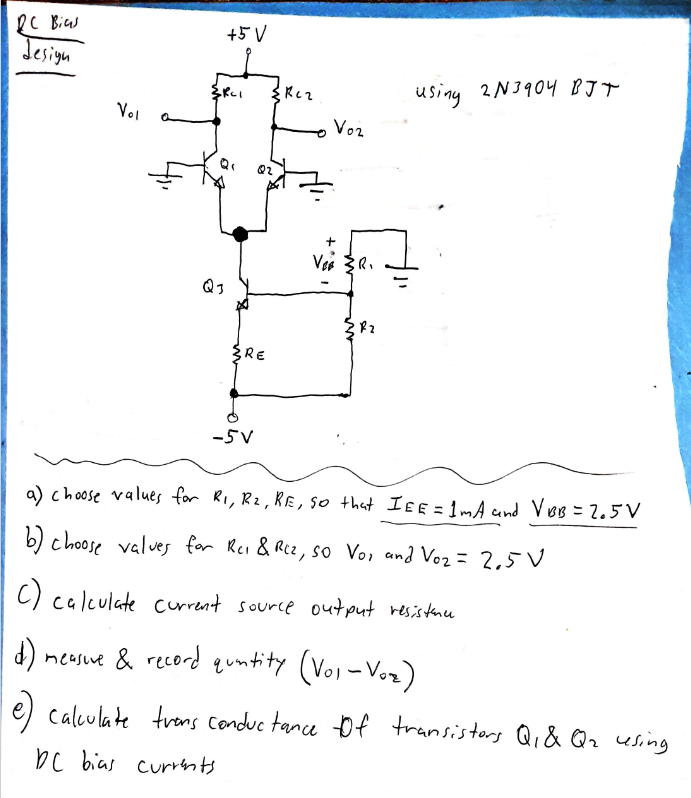 DC Bias
design
+5 V
RC1
RC2
using 2N3904 BJT
Vo1
Vo2
Q1
Q2
+
VBB
R1
-
Q3
R2
RE
-5V
a) choose values for R1, R2, RE, so that IEE = 1mA and VBB = 2.5V
b) choose values for RC1 & RC2, so Vo1 and Vo2 = 2.5 V
C) calculate current source output resistance
d) measure & record quntity (Vo1 - Vo2)
e) calculate trans conductance Of transistors Q1 & Q2 using
DC bias currents